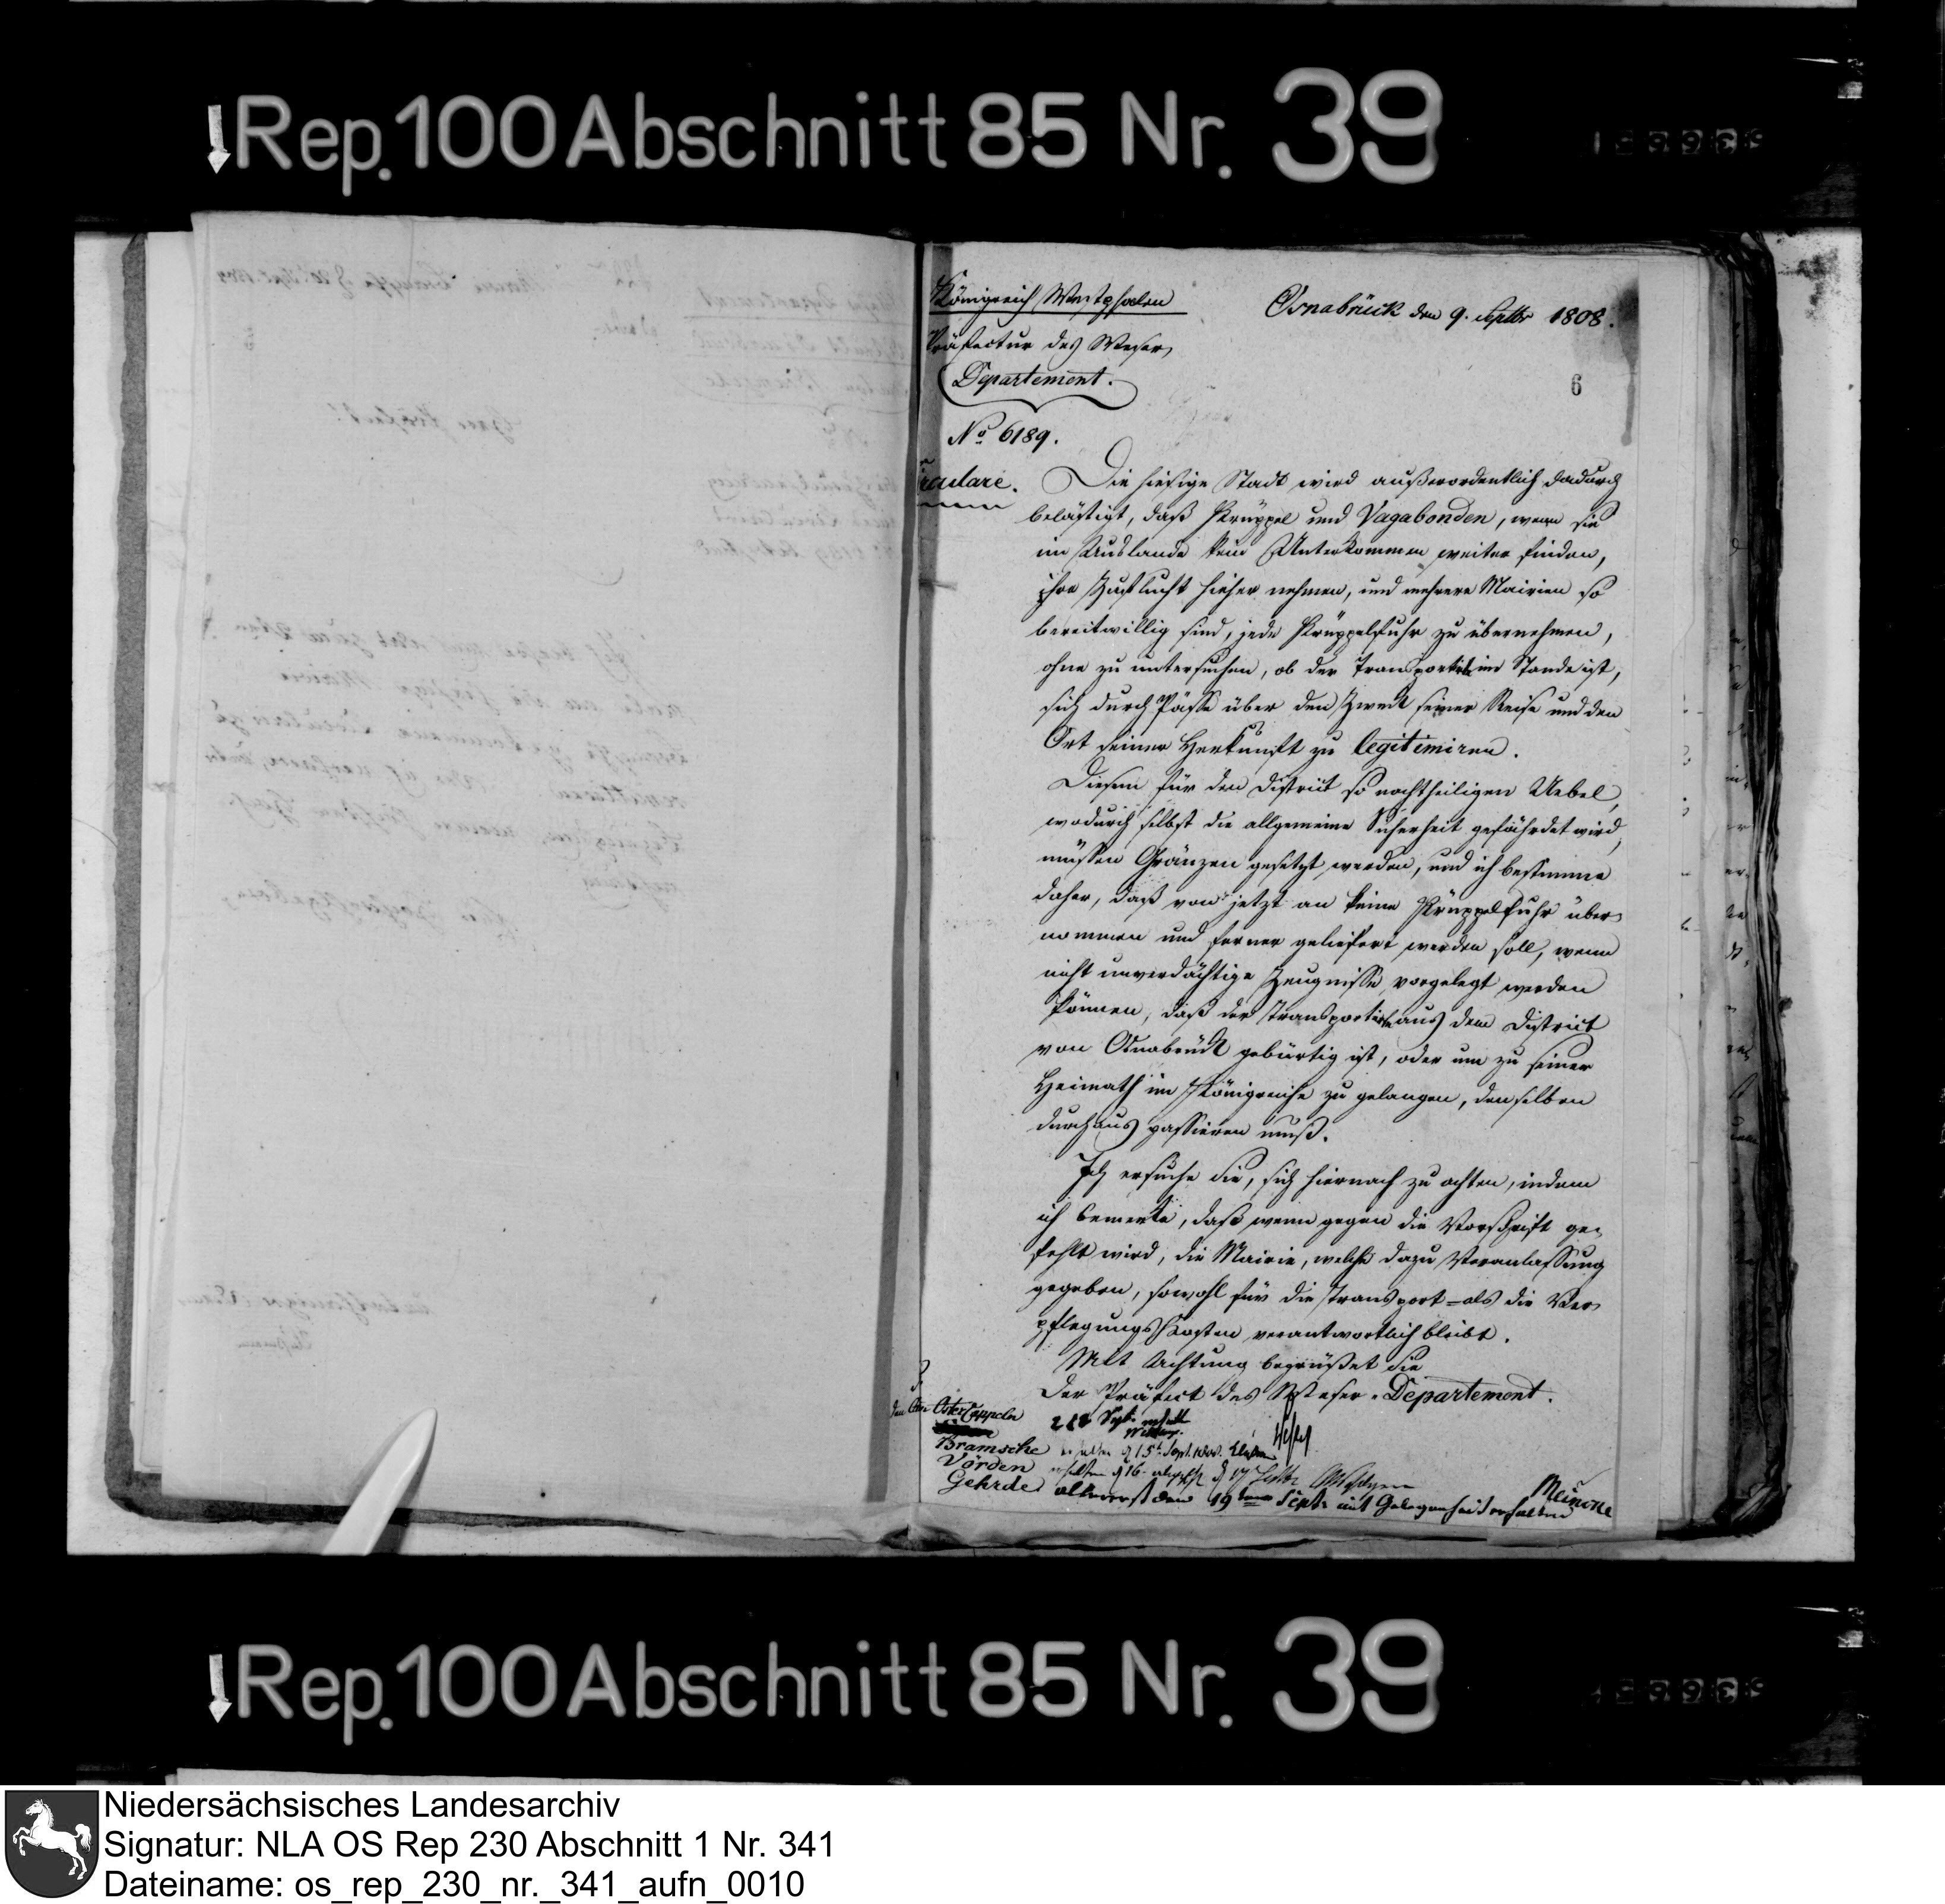 Rep. 100 Abschnitt 85 Nr. 39
Königreich Westphalen
Osnabrück den 9. Septbr 1808.
Präfectur des Weser
Departement.
6
No 6189.
Circulare.
Die hiesige Stadt wird außerordentlich dadurch
belästigt, daß Krüppel und Vagabonden, wenn sie
im Auslande kein Unterkommen weiter finden,
ihre Zuflucht hieher nehmen, und mehrere Mairien so
bereitwillig sind, jede Krüppelfuhr zu übernehmen,
ohne zu untersuchen, ob der Transportirte im Stande ist,
sich durch Pässe über den Zweck seiner Reise und den
Ort seiner Herkunft zu legitimiren.
Diesem für den District so nachtheiligen Uebel,
wodurch selbst die allgemeine Sicherheit gefährdet wird,
müssen Gränzen gesetzt werden, und ich bestimme
daher, daß von jetzt an keine Krüppelfuhr über
nommen und ferner geliefert werden soll, wenn
nicht unverdächtige Zeugnisse vorgelegt werden
können, daß der Transportirte aus dem District
von Osnabrück gebürtig ist, oder um zu seiner
Heimath im Königreiche zu gelangen, denselben
durchaus passieren muß.
Ich ersuche Sie, sich hiernach zu achten, indem
ich bemerke, daß wenn gegen die Vorschrift ge
fehlt wird, die Mairie, welche dazu Veranlassung
gegeben, sowohl für die Transport= als die Ver
pflegungs Kosten verantwortlich bleibt.
Mit Achtung begrüßet Sie
Der Präfect des Weser-Departement.
Oster Cappeln
Sept.
Bramsche erhalten d 15t Sept.
Vörden erhalten d 16. d 17
Gehrde den 19ten Septr mit Gelegenheit erhalten
Rep. 100 Abschnitt 85 Nr. 39
Niedersächsisches Landesarchiv
Signatur: NLA OS Rep 230 Abschnitt 1 Nr. 341
Dateiname: os_rep_230_nr._341_aufn_0010